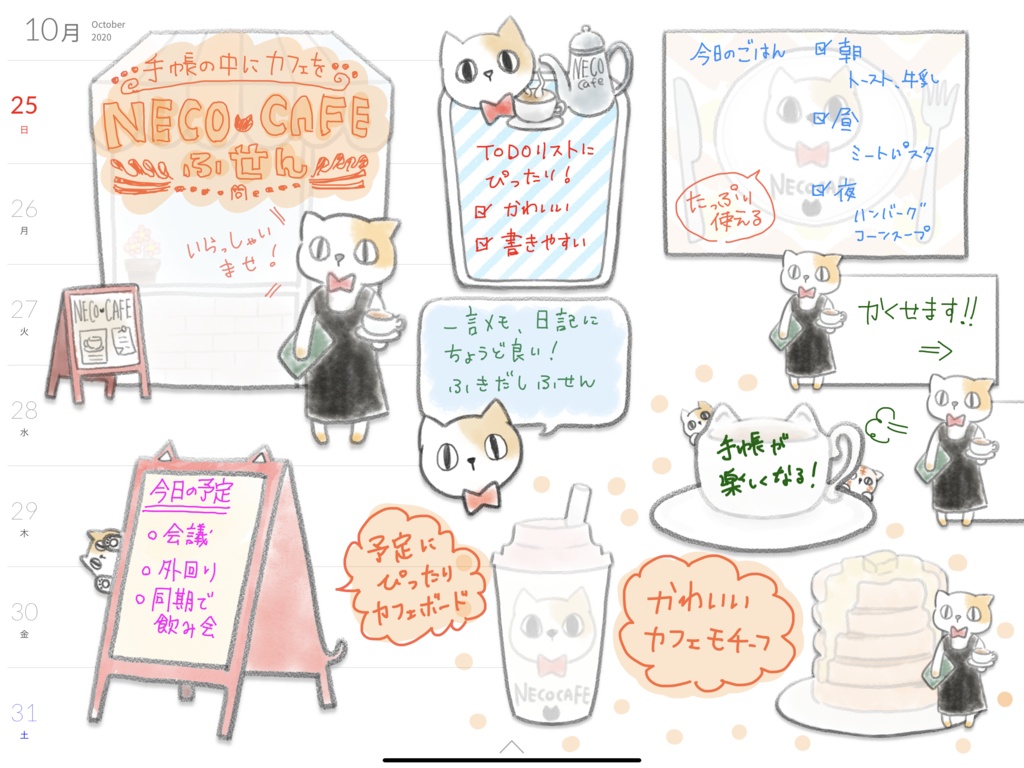 10月
October
2020
25
日
26
月
27
火
28
水
29
木
30
金
31
土
手帳の中にカフェを
NECO CAFE
ふせん
いらっしゃい
ませ!
NECO CAFE
NECO
Cafe
TODOリストに
ぴったり!
かわいい
書きやすい
今日のごはん
朝
トースト、牛乳
昼
ミートパスタ
夜
ハンバーグ
コーンスープ
たっぷり
使える
NECOCAFE
一言メモ、日記に
ちょうど良い!
ふきだしふせん
かくせます!!
⇒
手帳が
楽しくなる!
今日の予定
○会議
○外回り
○同期で
飲み会
予定に
ぴったり
カフェボード
NECOCAFE
かわいい
カフェモチーフ